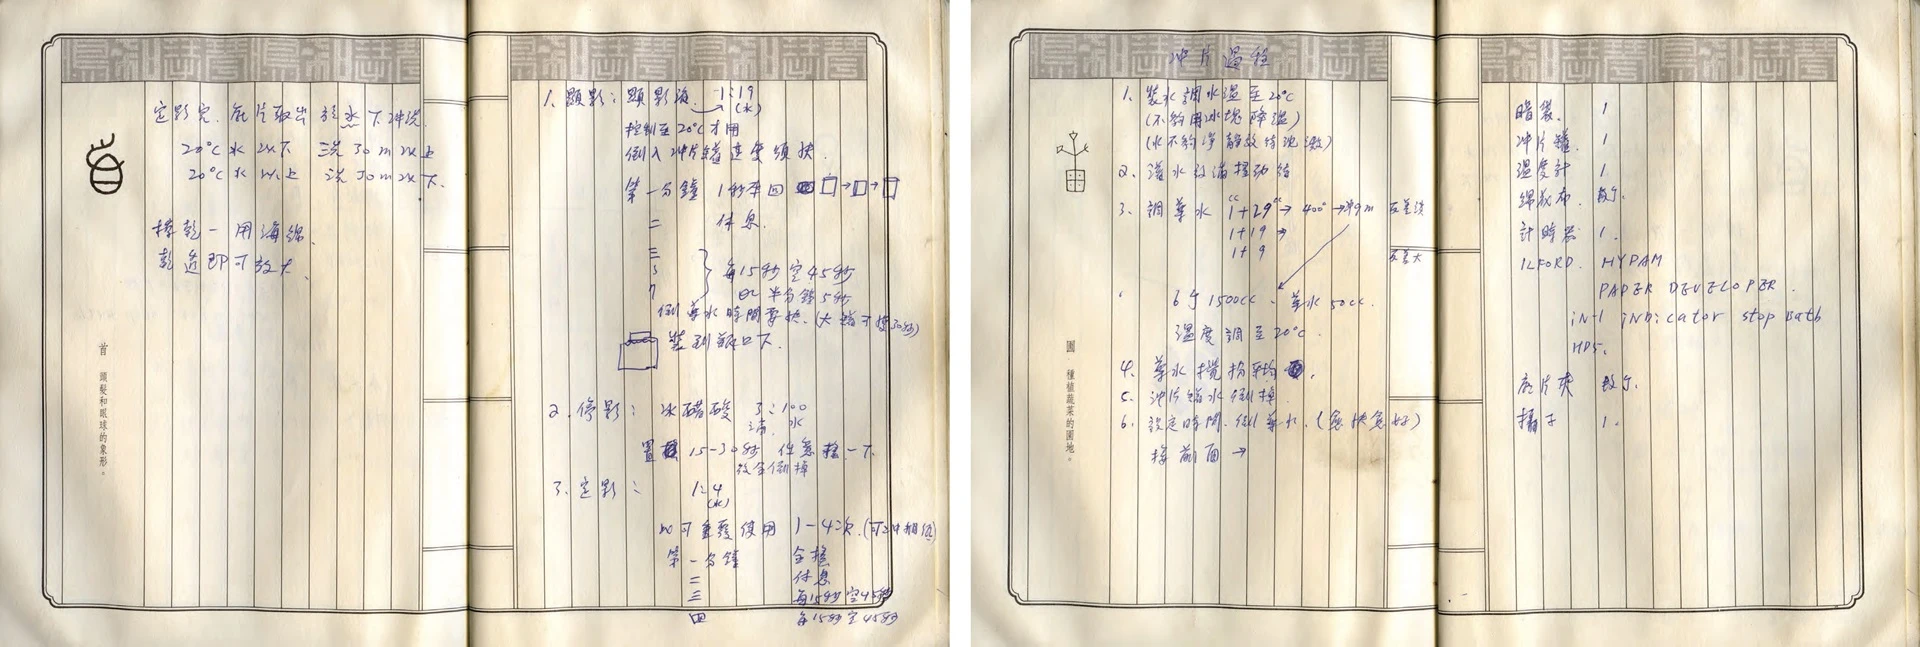 定影完. 底片取出 於水下沖洗.
20°C水以下 三洗30m以上
20°C水以上 洗30m以下.
擦乾一用海綿.
乾透即可放大.
首 頭髮和眼球的象形。
1. 顯影: 顯影液. 1:19
(水)
控制至20°C才用
倒入沖片罐速度須快.
第一分鐘 1秒來回
二 休息.
三
5
7
每15秒空45秒
or 半分鐘5秒
倒藥水時間要快.(大罐可提30秒)
裝到瓶口下.
2. 停影: 冰醋酸 3:100
清 水
置 15-30秒 任意搖一下
完全倒掉
3. 定影: 1:4
(水)
可重覆使用 1-4次.
第一分鐘 全搖
二 休息
三 每15秒空45秒
四 每15秒空45秒
沖片過程
1. 裝水調水溫至20°C
(不夠用冰塊降溫)
(水不夠淨 靜放待沈澱)
2. 灌水放滿搖動待
3. 調藥水 "1+29" → 400° → 9m 反差淡
1+19 →
1+9 反差大
1500cc 藥水50cc.
溫度調至20°C.
4. 藥水攪拌平均.
5. 沖片罐水倒掉.
6. 設定時間. 倒藥水. (愈快愈好)
接前面 →
圃 種植蔬菜的園地。
暗袋. 1
沖片罐. 1
溫度計 1
綿紗布. 數個.
計時器 1.
ILFORD. HYPAM
PAPER DEVELOPER.
iN-1 iNDicator stop Bath
HP5.
底片夾 數個.
攝子 1.